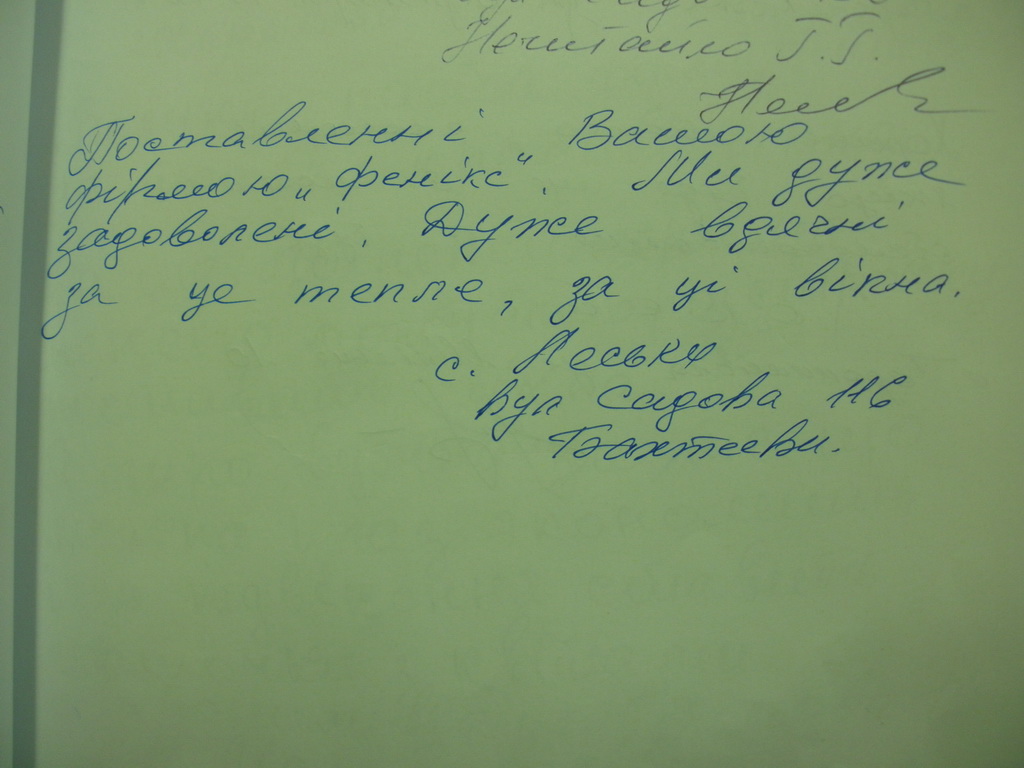 Т.Т.
Поставленні Вашою
фірмою „Фенікс“. Ми дуже
задоволені. Дуже вдячні
за це тепле, за ці вікна.
с. Леськи
вул Садова 116
Бахтеєви.